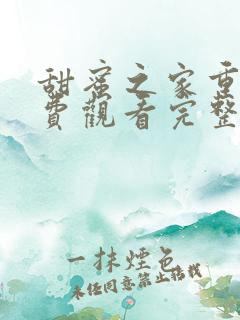 甜蜜之家重
費觀看完整
一抹煙色
未經同意禁止搭載